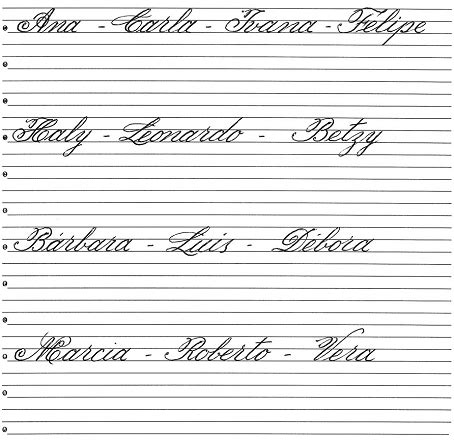 Ana - Carla - Ivana - Felipe
Haly - Leonardo - Betzy
Bárbara - Luis - Débora
Marcia - Roberto - Vera